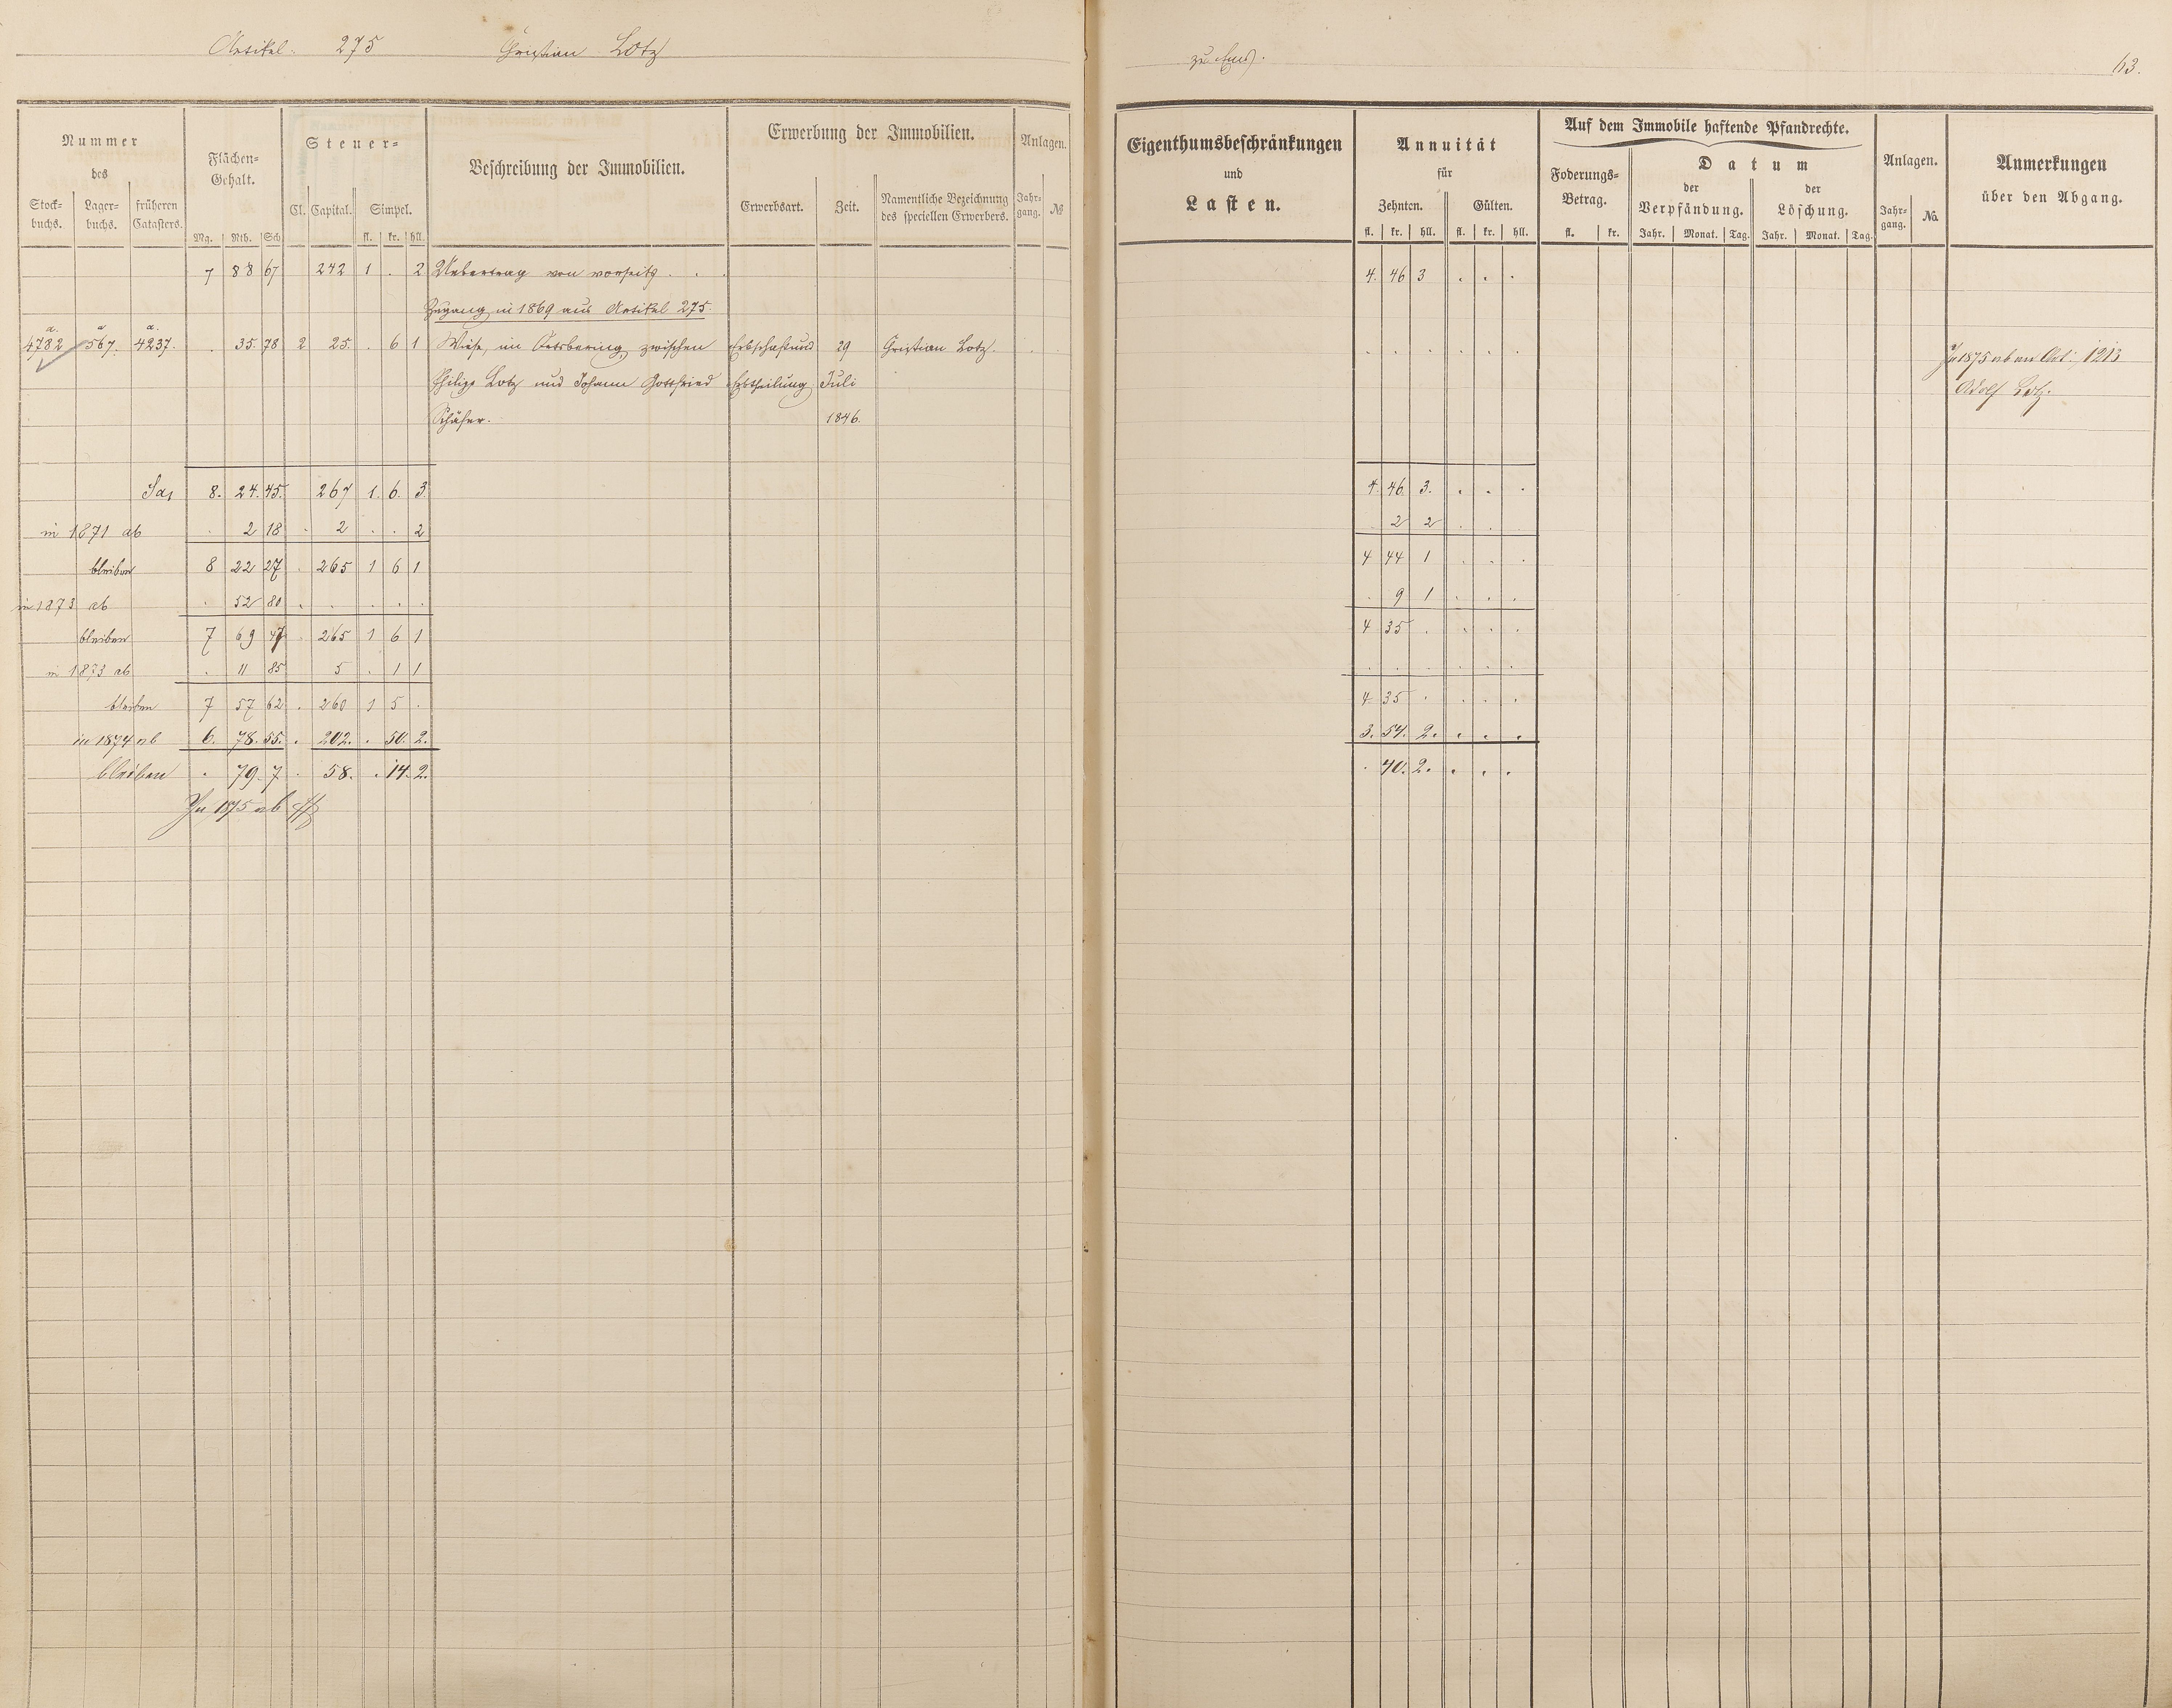 Artikel 275 Christian Lotz
zu Ems. 63.
Nummer
des
Stock-
buchs.
Lager-
buchs.
früheren
Catasters.
Flächen-
Gehalt.
Mg. Rth. Sch
Steuer-
Cl. Capital. Simpel.
fl. kr. hll.
Beschreibung der Immobilien.
Erwerbung der Immobilien.
Erwerbsart. Zeit.
Namentliche Bezeichnung
des speciellen Erwerbers.
Anlagen.
Jahr-
gang. №
Eigenthumsbeschränkungen
und
Lasten.
Annuität
für
Zehnten. Gülten.
fl. kr. hll. fl. kr. hll.
Auf dem Immobile haftende Pfandrechte.
Foderungs-
Betrag.
fl. kr.
Datum
der
Verpfändung.
Jahr. Monat. Tag.
der
Löschung.
Jahr. Monat. Tag.
Anlagen.
Jahr-
gang. No.
Anmerkungen
über den Abgang.
7 88 67 242 1 . 2 Uebertrag von vorseitg . . 4. 46 3 . . .
Zugang in 1869 aus Artikel 275.
a. a a.
4782 567. 4237. . 35. 78 2 25. . 6 1 Wiese, im zwischen Erbschaft und 29 Christian Lotz. . . . . . . In 1875 ab an Art: 1213
Philipp Lotz und Johann Gottfried Erbtheilung Juli Adolf Lotz.
Schäfer. 1846.
Sa, 8. 24. 45. 267 1. 6. 3. 4. 46. 3. . . .
in 1871 ab . 2 18 . 2 . . 2 . 2 2 . .
bleiben 8 22 27 . 265 1 6 1 4 44 1 . . .
in 1873 ab . 52 80 . . . . . . 9 1 . . .
bleiben 7 69 47 . 265 1 6 1 4 35 . . . .
in 1873 ab . 11 85 5 . 1 1 . . . . . .
bleiben 7 57 62 . 260 1 5 . 4 35 . . . .
in 1874 ab 6. 78. 55. . 202. . 50. 2. 3. 54. 2. . . .
bleiben . 79. 7. . 58. . 14. 2. . 40. 2. . . .
In 1875 ab